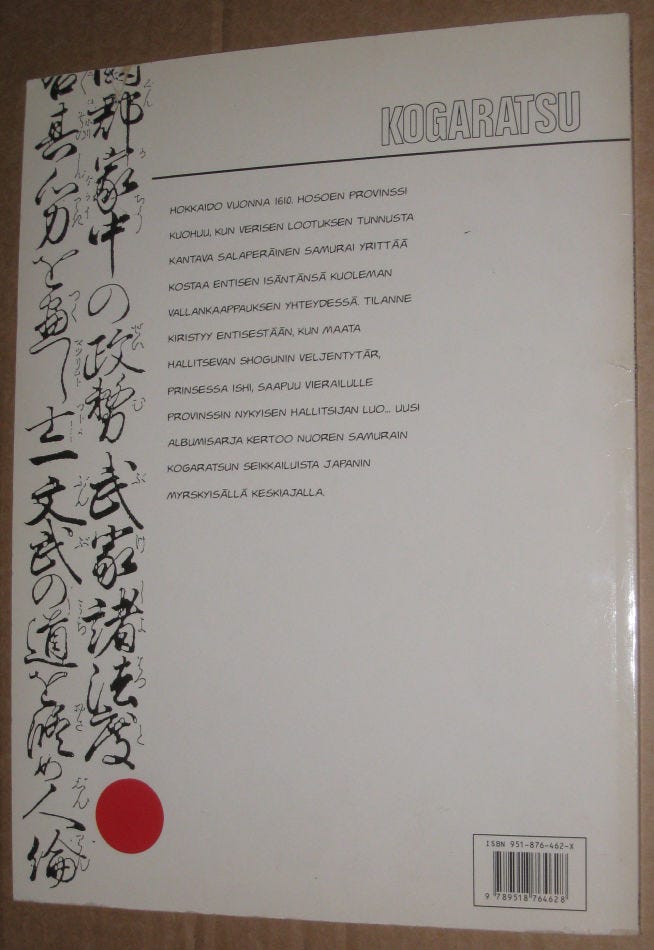 KOGARATSU
HOKKAIDO VUONNA 1610. HOSOEN PROVINSSI
KUOHUU, KUN VERISEN LOOTUKSEN TUNNUSTA
KANTAVA SALAPERÄINEN SAMURAI YRITTÄÄ
KOSTAA ENTISEN ISÄNTÄNSÄ KUOLEMAN
VALLANKAAPPAUKSEN YHTEYDESSÄ. TILANNE
KIRISTYY ENTISESTÄÄN, KUN MAATA
HALLITSEVAN SHOGUNIN VELJENTYTÄR,
PRINSESSA ISHI, SAAPUU VIERAILULLE
PROVINSSIN NYKYISEN HALLITSIJAN LUO... UUSI
ALBUMISARJA KERTOO NUOREN SAMURAIN
KOGARATSUN SEIKKAILUISTA JAPANIN
MYRSKYISÄLLÄ KESKIAJALLA.
郡家中の政務武家諸法度
其心力を士一文武の道を修め人倫
ISBN 951-876-462-X
9 789518 764628